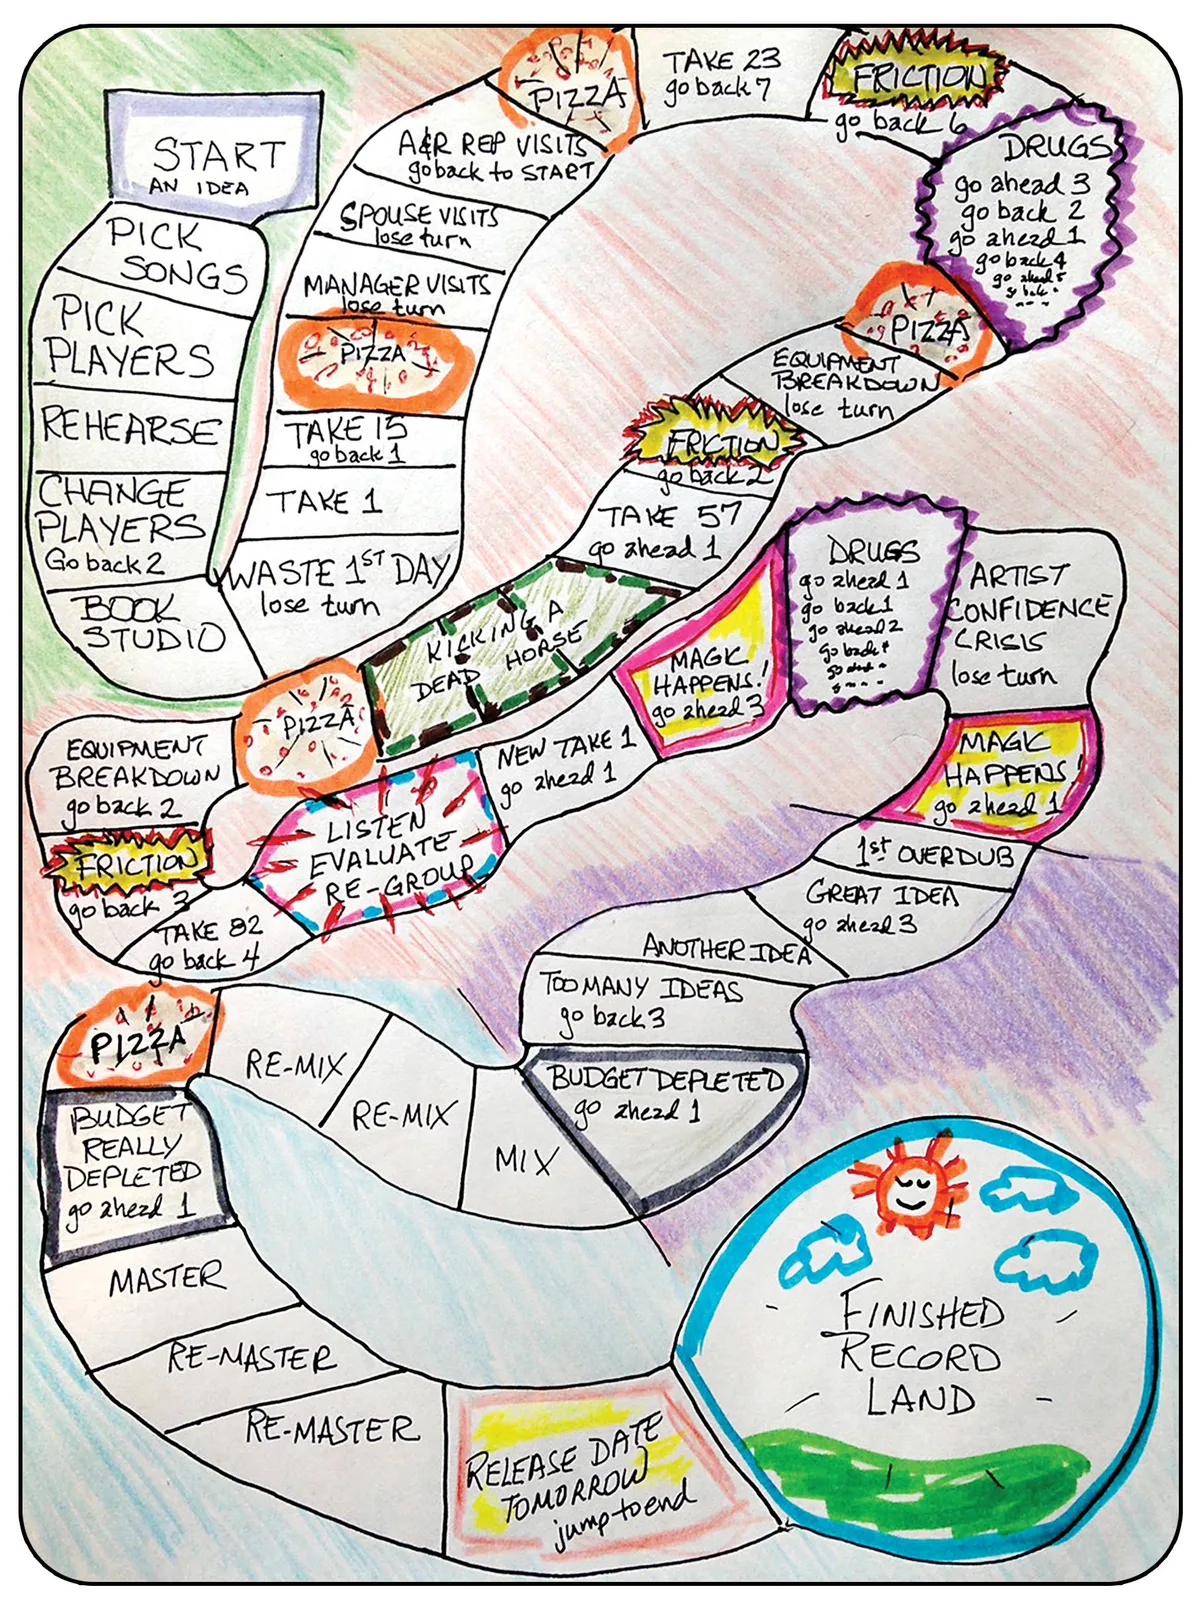 START
AN IDEA
PICK
SONGS
PICK
PLAYERS
REHEARSE
CHANGE
PLAYERS
Go back 2
BOOK
STUDIO
WASTE 1ST DAY
lose turn
TAKE 1
TAKE 15
go back 1
PIZZA
MANAGER VISITS
lose turn
SPOUSE VISITS
lose turn
A&R REP VISITS
go back to START
PIZZA
TAKE 23
go back 7
FRICTION
go back 6
DRUGS
go ahead 3
go back 2
go ahead 1
go back 4
go ahead 5
go back
PIZZA
EQUIPMENT
BREAKDOWN
lose turn
FRICTION
go back 2
TAKE 57
go ahead 1
KICKING A
DEAD HORSE
PIZZA
EQUIPMENT
BREAKDOWN
go back 2
FRICTION
go back 3
TAKE 82
go back 4
LISTEN
EVALUATE
RE-GROUP
NEW TAKE 1
go ahead 1
MAGIC
HAPPENS!
go ahead 3
DRUGS
go ahead 1
go back 1
go ahead 2
go back
go ahead
ARTIST
CONFIDENCE
CRISIS
lose turn
MAGIC
HAPPENS!
go ahead 1
1st OVERDUB
GREAT IDEA
go ahead 3
ANOTHER IDEA
TOO MANY IDEAS
go back 3
BUDGET DEPLETED
go ahead 1
MIX
RE-MIX
RE-MIX
PIZZA
BUDGET
REALLY
DEPLETED
go ahead 1
MASTER
RE-MASTER
RE-MASTER
RELEASE DATE
TOMORROW
jump to end
FINISHED
RECORD
LAND